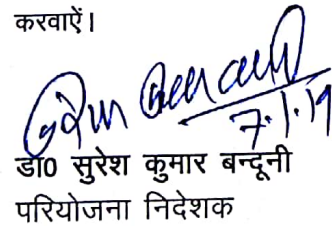 करवाऐं।
7.1.19
डा0 सुरेश कुमार बन्दूनी
परियोजना निदेशक